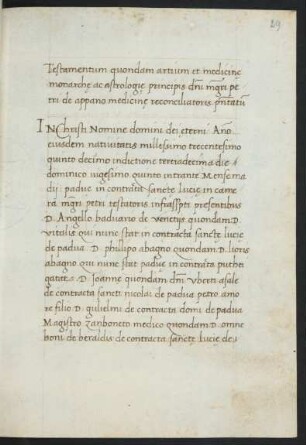 29
Testamentum quondam artium et medicinę
monarchę ac astrologię principis dñi mgrī pe
tri de appano medicinę reconciliatoris
IN Christi Nomine domini dei eterni. Año
eiusdem nativitatis millesimo trecentesimo
quinto decimo indictione terciadecima die
dominico vigesimo quinto intrante Mense ma
dij paduę in contrata sanctę lucię in came
ra mgrī petri testatoris infrascpti presentibus
D. Angello baduario de venetijs quondam D.
vitalis qui nunc stat in contracta sanctę lucię
de padua D. philippo abagno quondam D.
abagno qui nunc stat paduę in contrata puthei
D. Joanne quondam dñi vberti asale
de contracta sancti nicolai de padua petro
re filio D. gulielmi de contracta domi de padua
Magistro zanboneto medico quondam D. omne
boni de heraldis de contracta sanctę lucię de